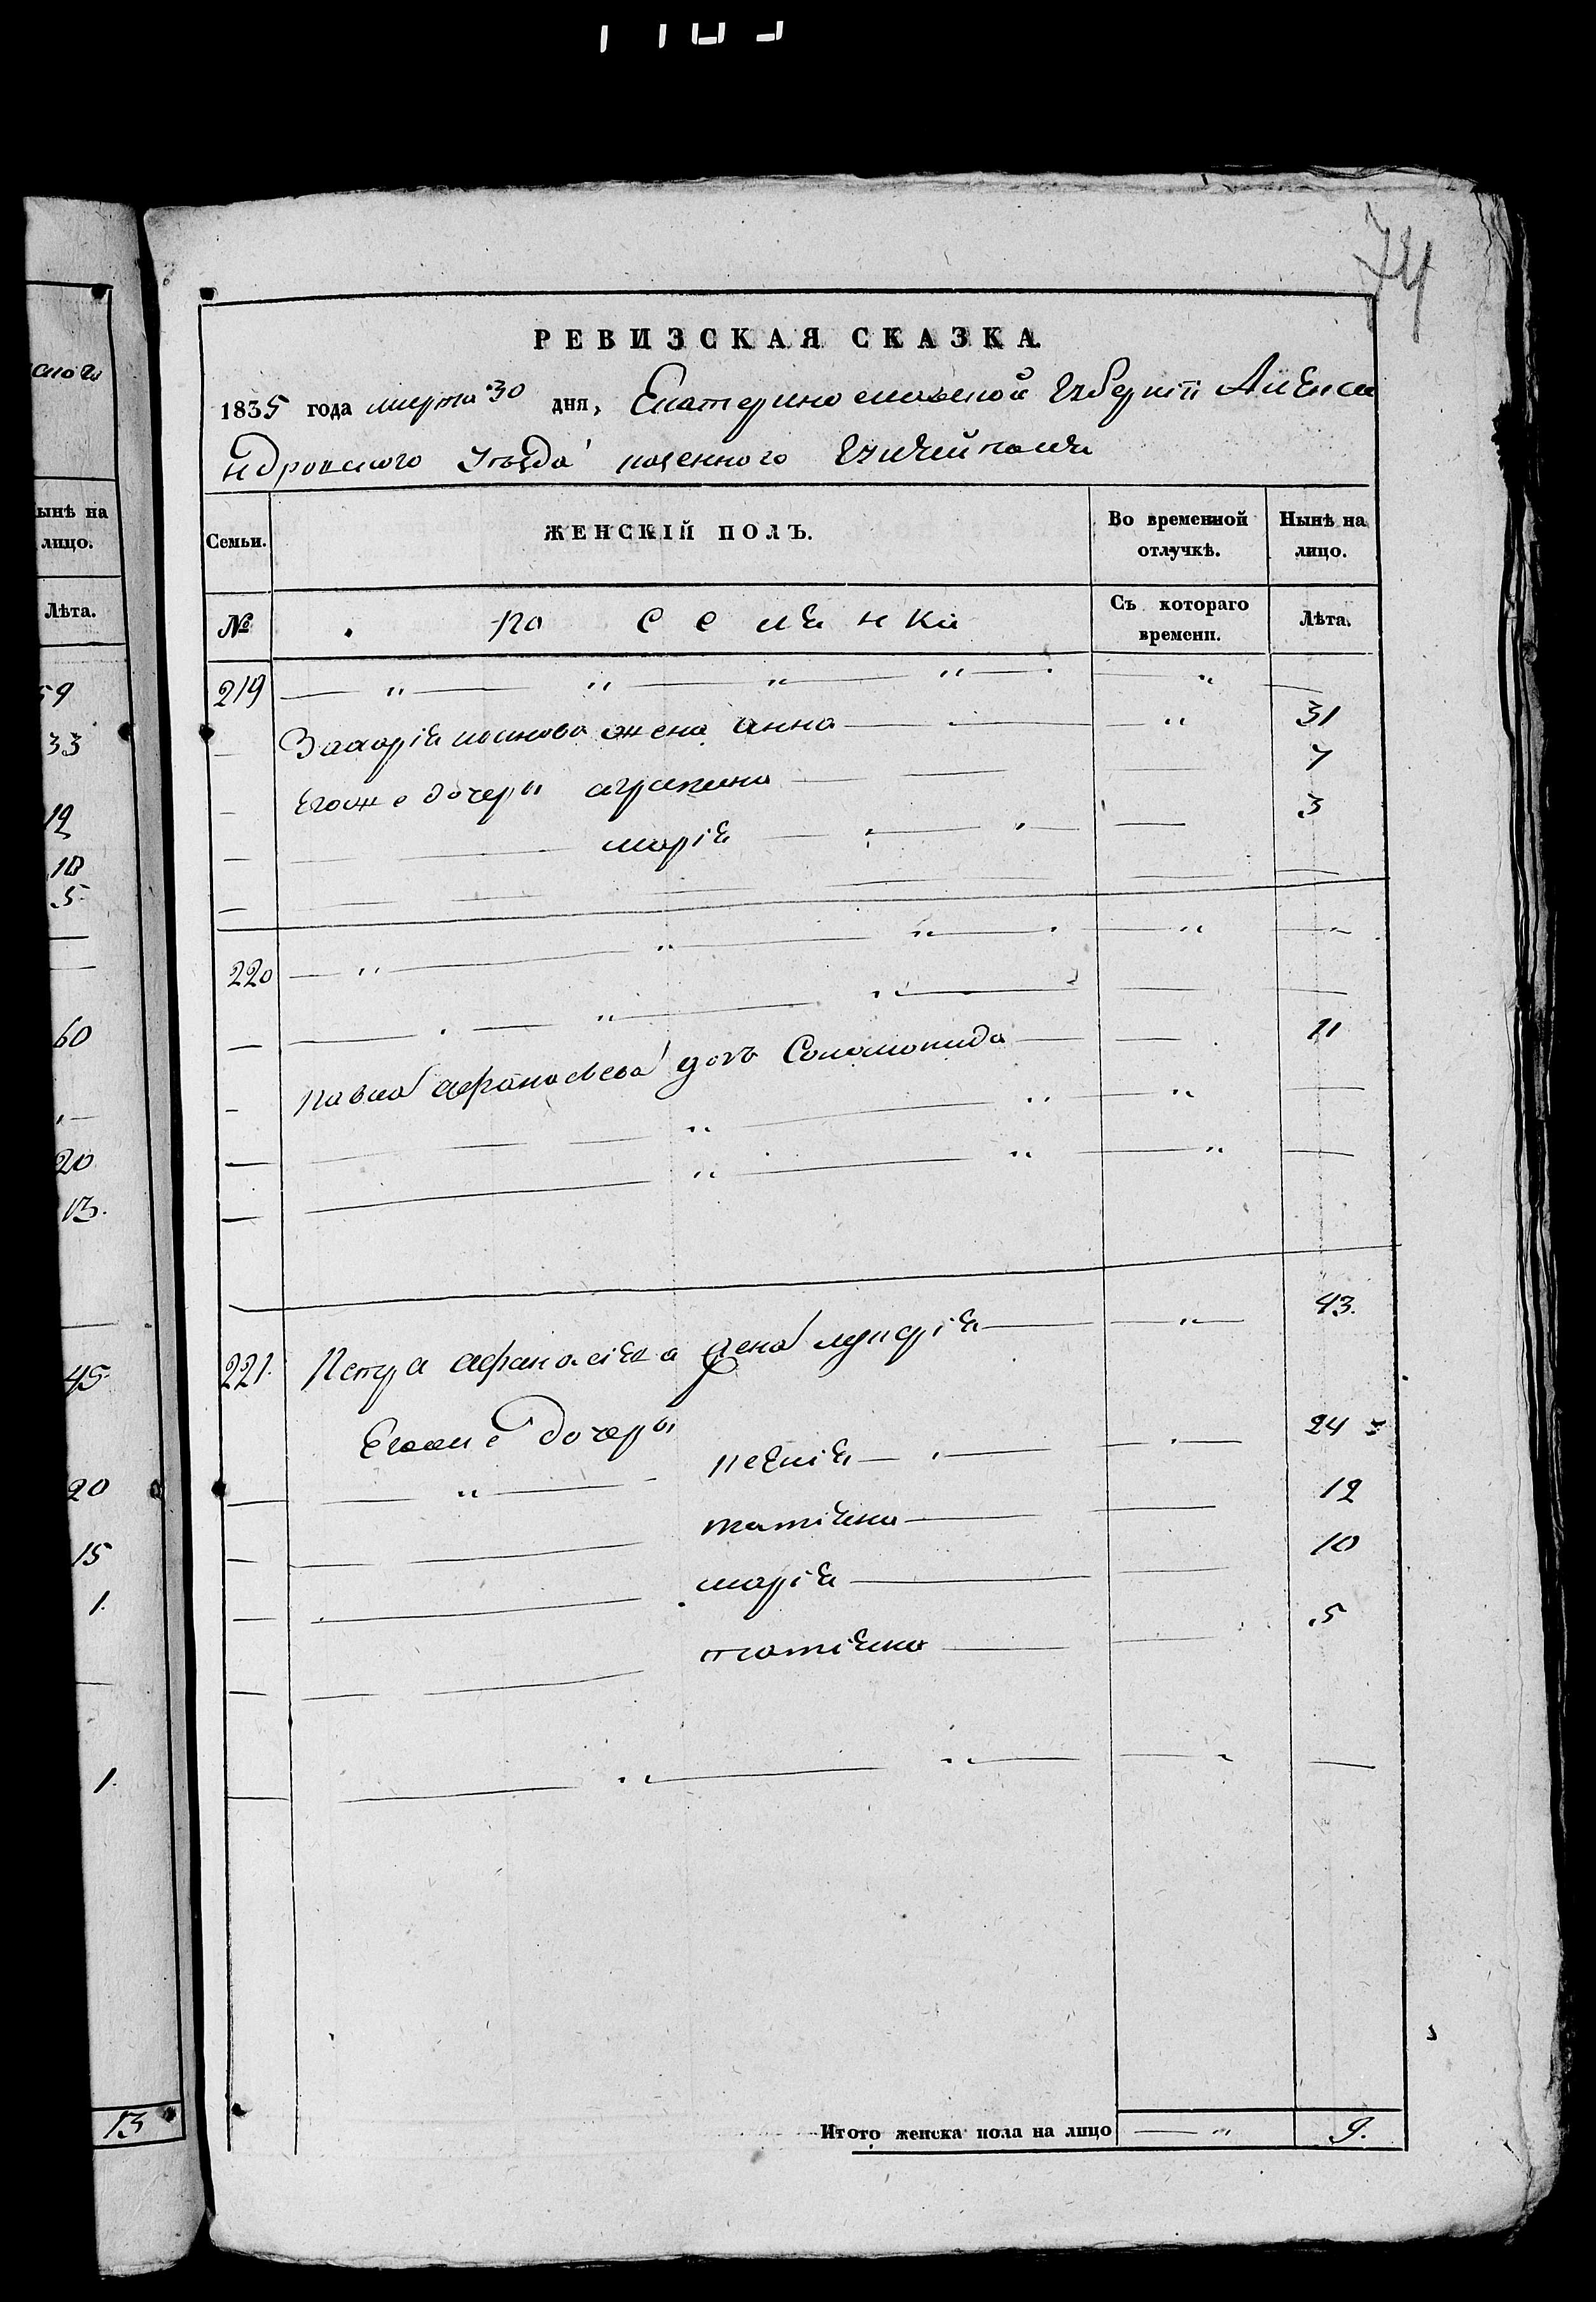 74
РЕВИЗСКАЯ СКАЗКА.
1835 года марта 30 дня, Екатеринославской Губернїи Алекса
ндровского уѣзда казенного Гуляйполя
Семьи. ЖЕНСКІЙ ПОЛЪ. Во временной отлучкѣ. Нынѣ на лицо.
№ поселянки Съ котораго времени. Лѣта.
219 — " — " — " — " — " —
— жена анна — — " 31
— Егоже дочеры агрипина — — — 7
— — марія — " — " — — 3
— — — — — — —
220 — " — " — " — — " — "
— — " — " — — —
— павла афанасьева дочь Соломонида — — 11
— — — " — " — " —
— — " — " — " —
221. Петра афанасіева жена — — " — 43.
Егоже дочеры
— — " — — — — 24
— — — татіяна — — 12
— — марія — — 10
— — — татіяна — — 5
— — " — " — — " —
Итого женска пола на лицо — " 9.
ынѣ на
лицо.
Лѣта.
59
33
12
10
5
—
—
60
—
20
13.
—
45
20
15
1.
—
1.
13